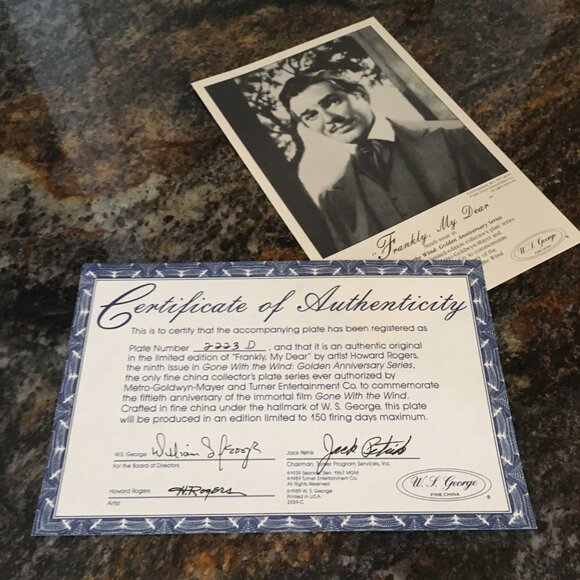 "Frankly, My Dear"
ninth issue in
the Wind: Golden Anniversary Series
collector's plate series
Metro-Goldwyn-Mayer and
to commemorate
of the
the Wind
W. S. George
FINE CHINA
Certificate of Authenticity
This is to certify that the accompanying plate has been registered as
Plate Number 2223 D , and that it is an authentic original
in the limited edition of "Frankly, My Dear" by artist Howard Rogers,
the ninth issue in Gone With the Wind: Golden Anniversary Series,
the only fine china collector's plate series ever authorized by
Metro-Goldwyn-Mayer and Turner Entertainment Co. to commemorate
the fiftieth anniversary of the immortal film Gone With the Wind.
Crafted in fine china under the hallmark of W. S. George, this plate
will be produced in an edition limited to 150 firing days maximum.
W.S. George
For the Board of Directors
Jack Petrik
Jack Petrik
Chairman, Turner Program Services, Inc.
©1939 Selznick Ren. 1967 MGM
©1989 Turner Entertainment Co.
All Rights Reserved
©1989 W. S. George
Printed in U.S.A.
2559-C
Howard Rogers
H. Rogers
Artist
W. S. George
FINE CHINA
®